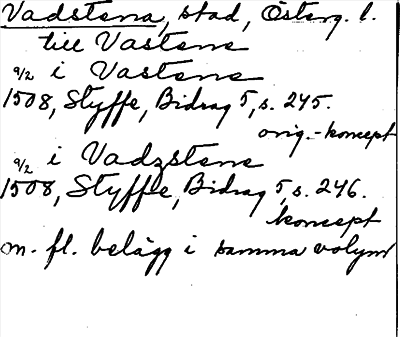 Vadstena, stad, Österg. l.
till Vastena
9/2 i Vastena
1508, Styffe, Bidrag 5, s. 245.
orig.-koncept
9/2 i Vadzstena
1508, Styffe, Bidrag 5, s. 246.
koncept
m. fl. belägg i samma volym